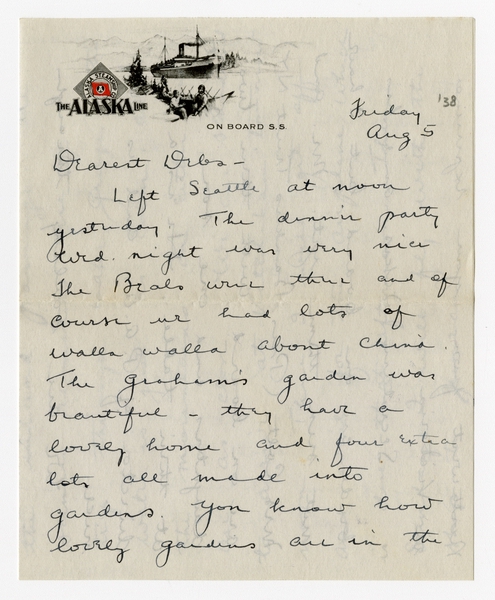 ALASKA STEAMSHIP CO.
THE ALASKA LINE
ON BOARD S.S.
'38
Friday
Aug 5
Dearest Debs -
Left Seattle at noon
yesterday. The dinner party
Wed. night was very nice
The Beals were there and of
course we had lots of
walla walla about China.
The Graham's garden was
beautiful - they have a
lovely home and four extra
lots all made into
gardens. You know how
lovely gardens are in the